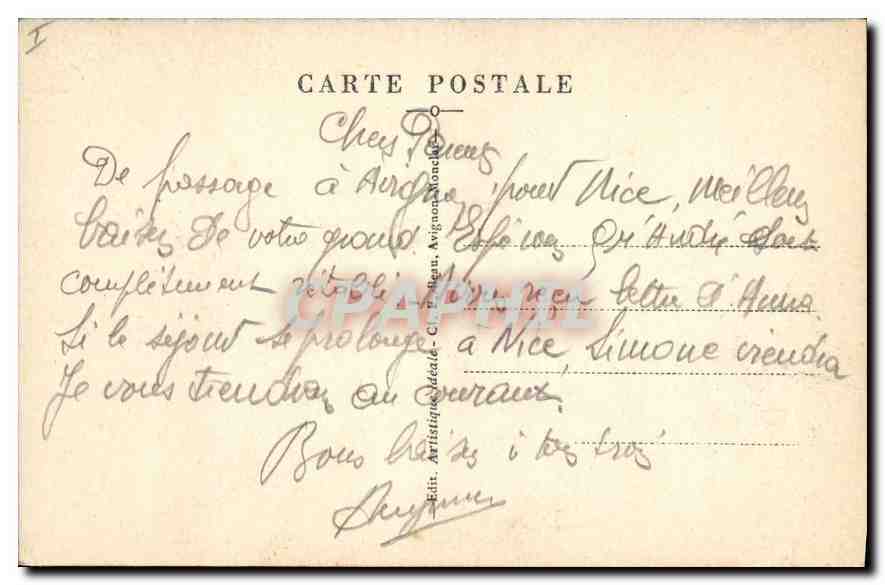 I
CARTE POSTALE
Chers
De passage à Avignon, pour Nice, meilleurs
baisers de votre grand. Espérons qu'André soit
complètement rétabli. Avons reçu lettre d'Anna
Si le séjour se prolonge à Nice, Simone viendra
Je vous tiendrai au courant.
Bons baisers à tous trois
Edit. Artistique Idéale - Cl. F. Beau, Avignon-Monclar
CPAPHIL